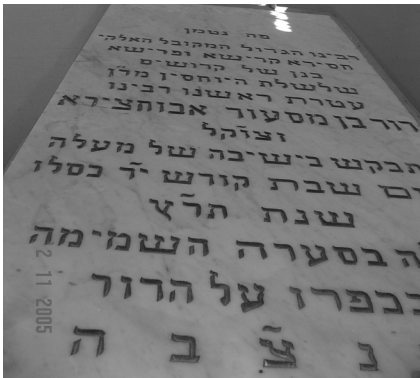 פה נטמן
רבינו הגדול המקובל האלקי
חסידא קדישא ופרישא
בנן של קדושים
שלשלת היוחסין מרן
עטרת ראשנו רבינו
דוד בן מסעוד אבוחצירא
וצוקל
בישיבה של מעלה
שבת קודש י"ד כסלו
שנת תר"ץ
בסערה השמימה
בכפרו על הדור
נ צ ב ה
2 11 2005